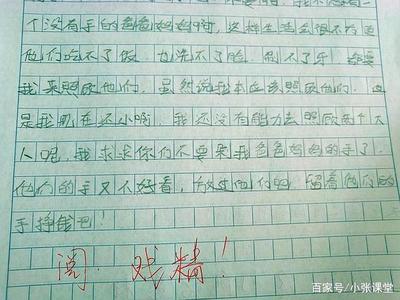 我不想有
个没有手的爸爸妈妈啊，这样生活会很不方便
他们吃不了饭，也洗不了脸，刷不了牙，都要
我来照顾他们，虽然说我本应该照顾他们，但
是我现在还小啊，我还没有能力去照顾两个大
人呢，我求求你们不要来我爸爸妈妈的手了，
他们的手又不好看，放过他们吧，留着他们的
手挣钱吧！
阅 戏精！
百家号/小张课堂